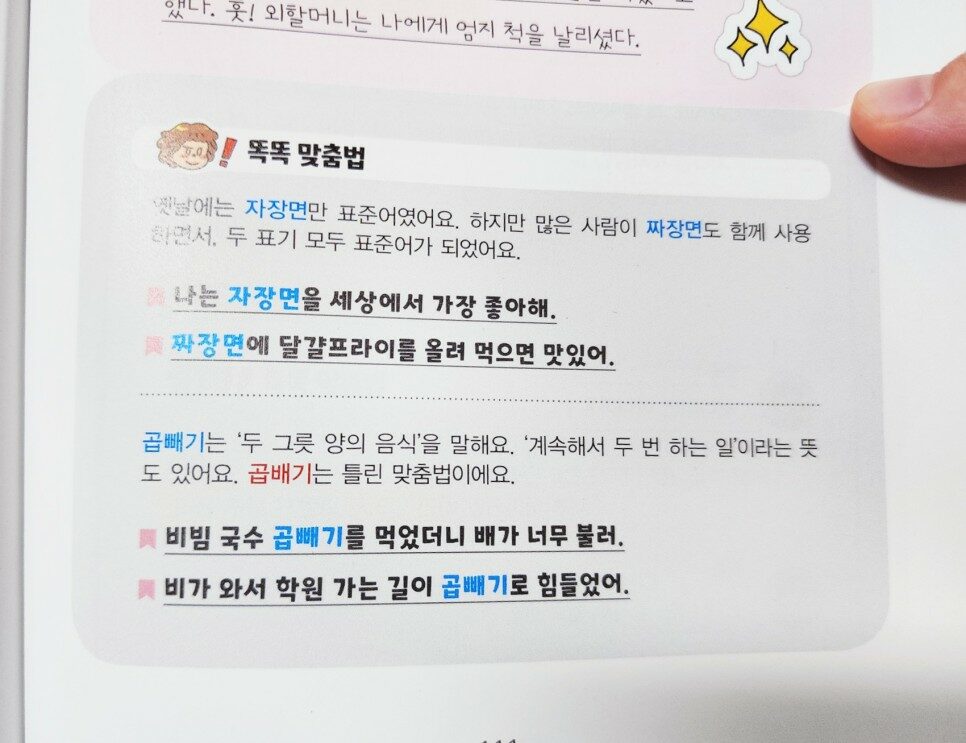 했다. 훗! 외할머니는 나에게 엄지 척을 날리셨다.
똑똑 맞춤법
옛날에는 자장면만 표준어였어요. 하지만 많은 사람이 짜장면도 함께 사용
하면서, 두 표기 모두 표준어가 되었어요.
나는 자장면을 세상에서 가장 좋아해.
짜장면에 달걀프라이를 올려 먹으면 맛있어.
곱빼기는 ‘두 그릇 양의 음식’을 말해요. ‘계속해서 두 번 하는 일’이라는 뜻
도 있어요. 곱배기는 틀린 맞춤법이에요.
비빔 국수 곱빼기를 먹었더니 배가 너무 불러.
비가 와서 학원 가는 길이 곱빼기로 힘들었어.